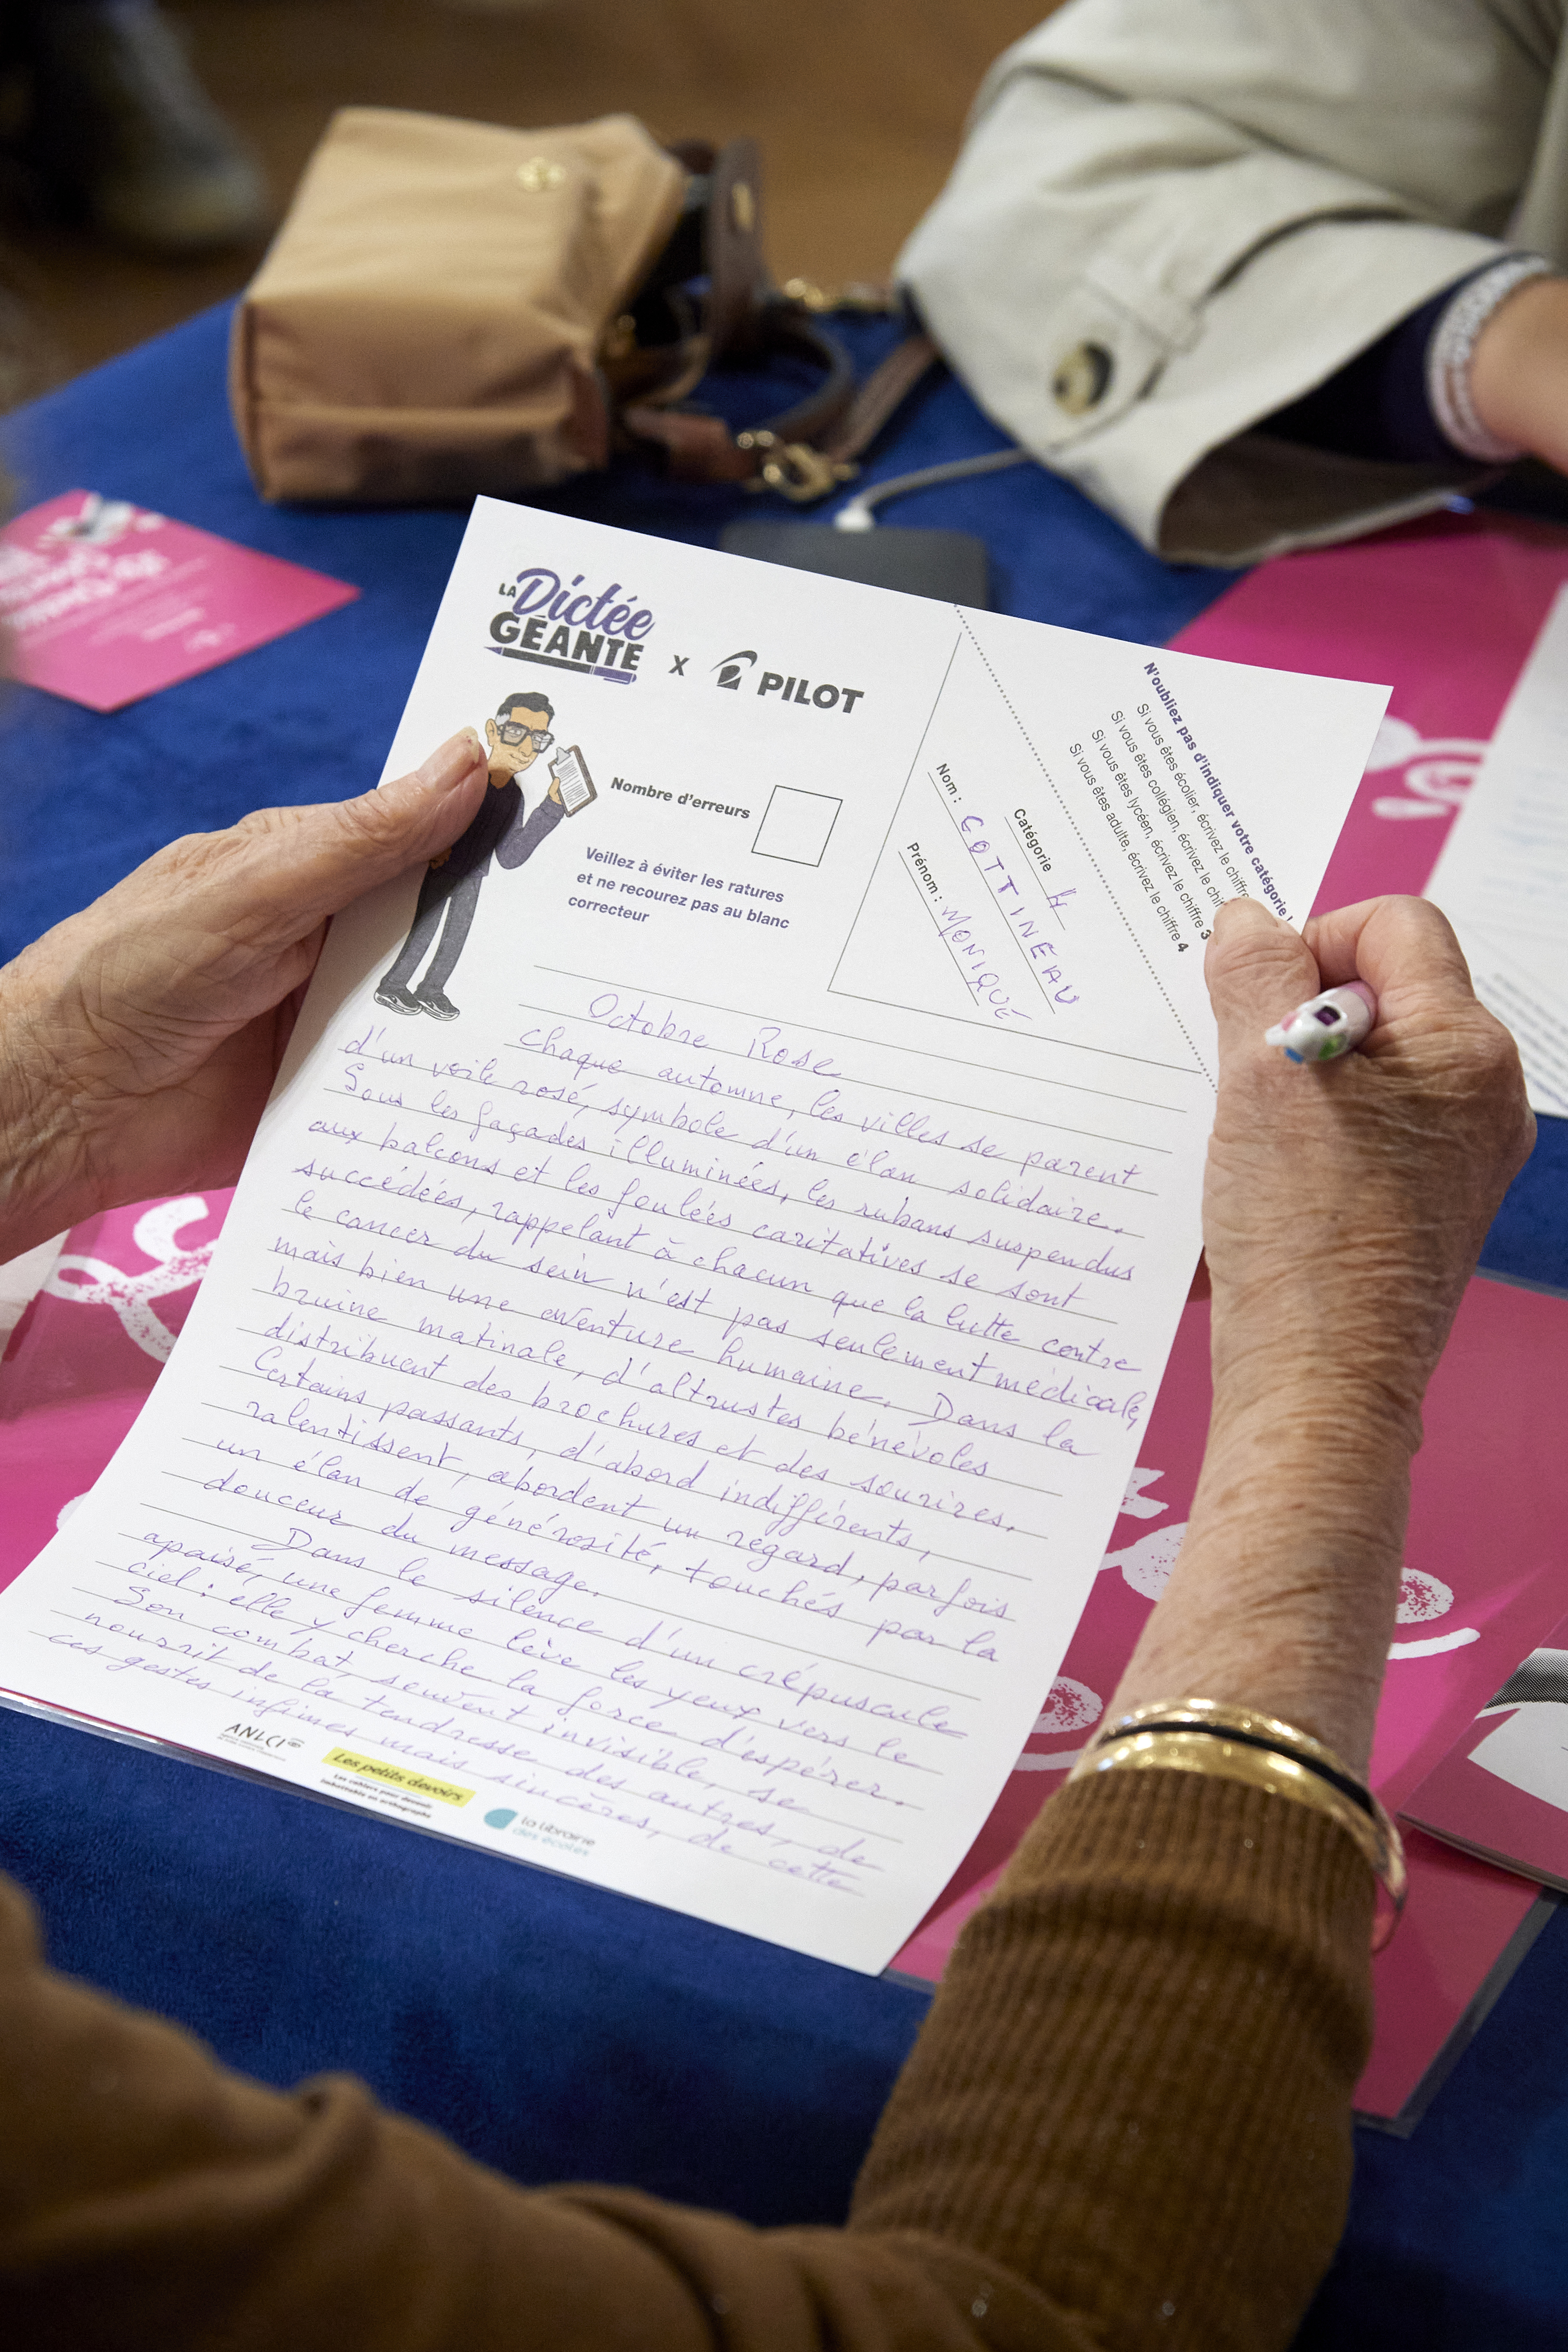 LA Dictée
GÉANTE
X PILOT
Nombre d'erreurs
Veillez à éviter les ratures
et ne recourez pas au blanc
correcteur
N'oubliez pas d'indiquer votre catégorie !
Si vous êtes écolier, écrivez le chiffre
Si vous êtes collégien, écrivez le
Si vous êtes lycéen, écrivez le chiffre 3
Si vous êtes adulte, écrivez le chiffre 4
Catégorie 4
Nom : COTTINEAU
Prénom : MONIQUE
Octobre Rose
Chaque automne, les villes se parent
d'un voile rosé, symbole d'un élan solidaire.
Sous les façades illuminées, les rubans suspendus
aux balcons et les foulées caritatives se sont
succédées, rappelant à chacun que la lutte contre
le cancer du sein n'est pas seulement médicale,
mais bien une aventure humaine. Dans la
bruine matinale, d'altrustes bénévoles
distribuent des brochures et des sourires.
Certains passants, d'abord indifférents,
ralentissent, abordent un regard, parfois
un élan de générosité, touchés par la
douceur du message.
Dans le silence d'un crépuscule
apaisé, une femme lève les yeux vers le
ciel : elle y cherche la force d'espérer.
Son combat, souvent invisible, se
nourrit de la tendresse des autres, de
ces gestes infimes mais sincères, de cette
ANLCI
Les petits devoirs
Les cahiers pour devenir
imbattable en orthographe
la librairie
des écoles